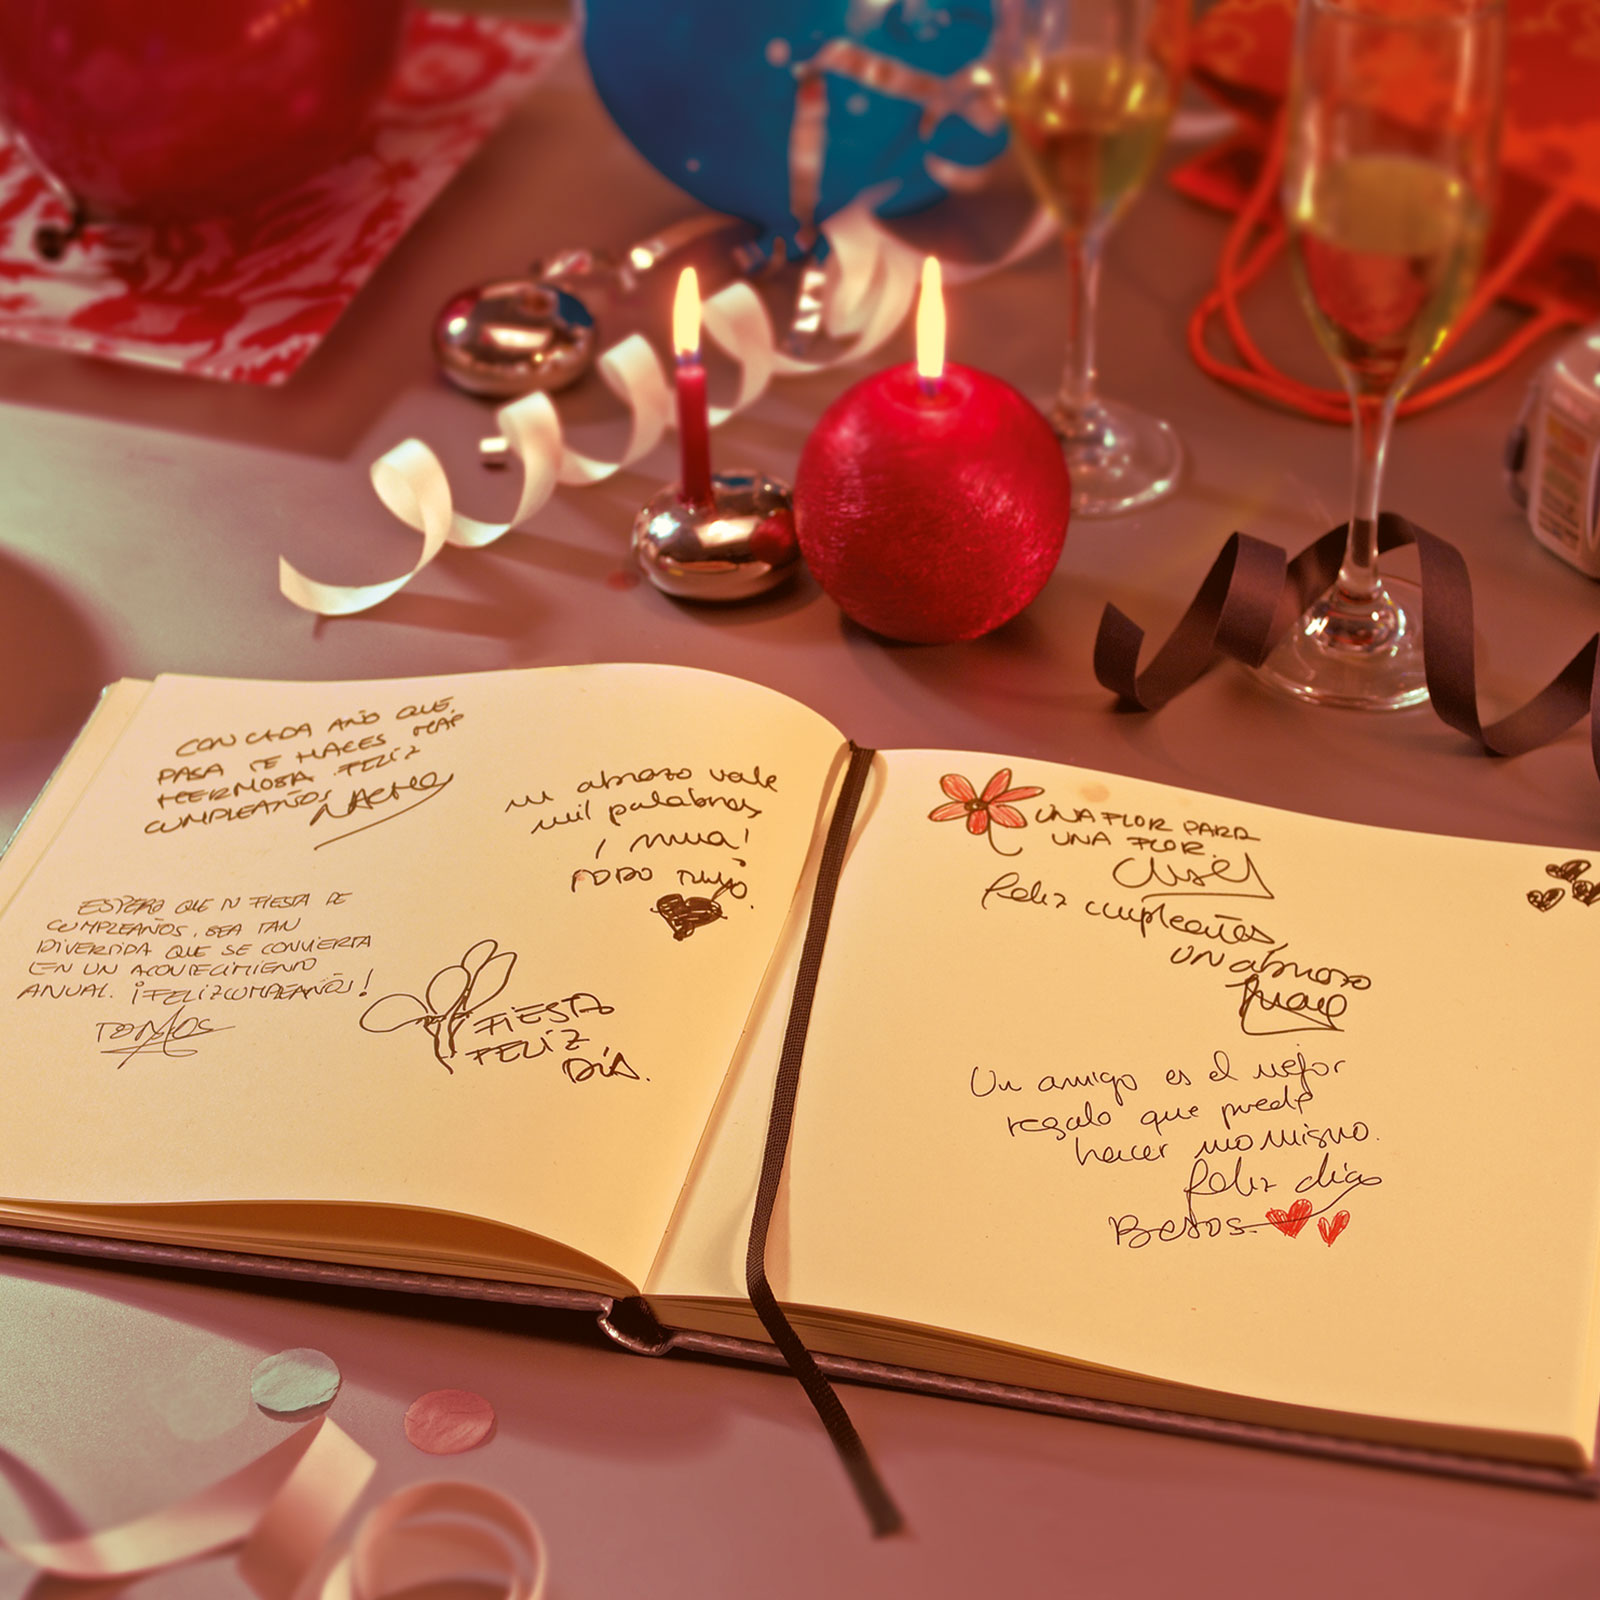 CON CADA AÑO QUE
PASA TE HACES MAS
HERMOSA. FELIZ
CUMPLEAÑOS
NACHO
un abrazo vale
mil palabras
¡ mua!
TODO TUYO.
ESPERO QUE TU FIESTA DE
CUMPLEAÑOS, SEA TAN
DIVERTIDA QUE SE CONVIERTA
EN UN ACONTECIMIENTO
ANUAL. ¡FELIZ CUMPLEAÑOS!
TOMAS
FIESTA
FELIZ
DÍA.
UNA FLOR PARA
UNA FLOR.
feliz cumpleaños,
un abrazo
Un amigo es el mejor
regalo que puede
hacer uno mismo.
feliz día
Besos.